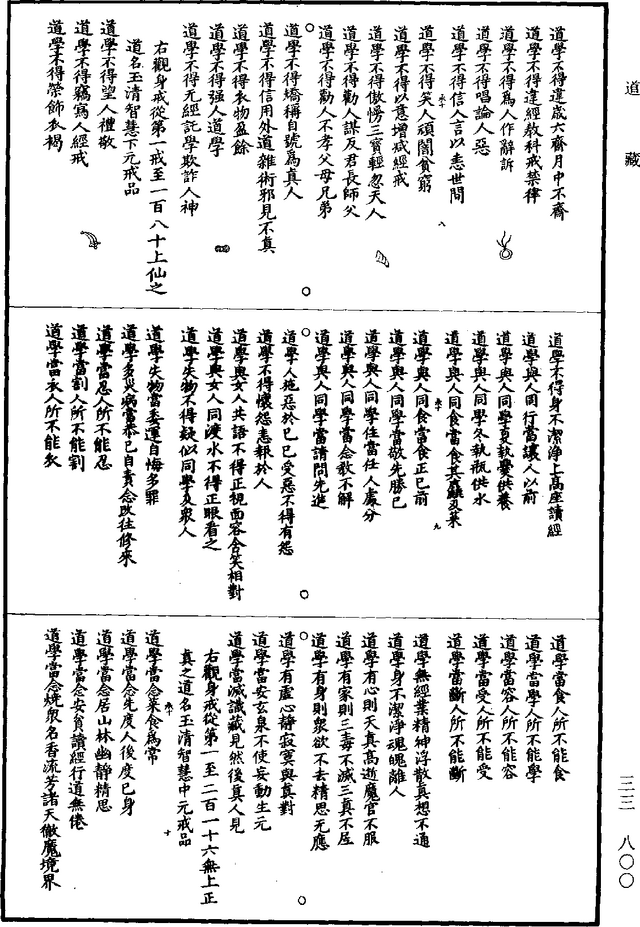 道藏
道學不得違歲六齋月中不齋
道學不得違經教科戒禁律
道學不得爲人作辭訴
道學不得唱論人惡
道學不得信人言以恚世間
道學不得笑人頑闇貧窮
道學不得以意增減經戒
道學不得傲慠三寶輕忽天人
道學不得勸人謀反君長師父
道學不得勸人不孝父母兄弟
道學不得嬌稱自號爲真人
道學不得信用外道雜術邪見不真
道學不得衣物盈餘
道學不得强人道學
道學不得无經詫學欺詐人神
右觀身戒從第一戒至一百八十上仙之
道名玉清智慧下元戒品
道學不得望人禮敬
道學不得竊寫人經戒
道學不得榮飾衣褐
道學不得身不潔淨上高座讀經
道學與人同行當讓人以前
道學與人同學夏執爨供養
道學與人同學冬執瓶供水
道學與人同食當食其麤及菜
道學與人同食當食正已前
道學與人同學當敬先勝己
道學與人同學住當任人處分
道學與人同學當念教不解
道學與人同學當請問先進
道學人施惡於己己受惡不得有怨
道學不得懷怨恚報於人
道學與女人共語不得正視面容含笑相對
道學與女人同渡水不得正眼看之
道學失物不得疑似同學及衆人
道學失物當委運自悔多罪
道學多災病當恭己自責念改往修來
道學當忍人所不能忍
道學當割人所不能割
道學當衣人所不能衣
道學當食人所不能食
道學當學人所不能學
道學當容人所不能容
道學當受人所不能受
道學當斷人所不能斷
道學無經業精神浮散真想不通
道學身不潔淨魂魄離人
道學有心則天真高逝魔官不服
道學有家則三毒不滅三真不居
道學有身則衆欲不去精思无應
道學有虛心静寂寞與真對
道學當安玄泉不使妄動生元
道學當滅識藏見然後真人見
右觀身戒從第一至二百一十六無上正
真之道名玉清智慧中元戒品
道學當念菜食爲常
道學當念先度人後度己身
道學當念居山林幽靜精思
道學當念安貧讀經行道無倦
道學當念燒衆名香流芳諸天徹魔境界
三三　八〇〇